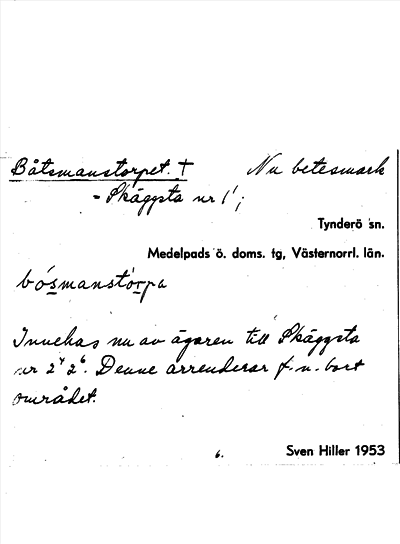 Båtsmanstorpet. † Nu betesmark
= Skäggsta nr 1¹;
Tynderö sn.
Medelpads ö. doms. tg, Västernorrl. län.
bósmanstorpa
Innehas nu av ägaren till Skäggsta
nr 2⁴ 2⁶. Denne arrenderar f. n. bort
området.
6. Sven Hiller 1953